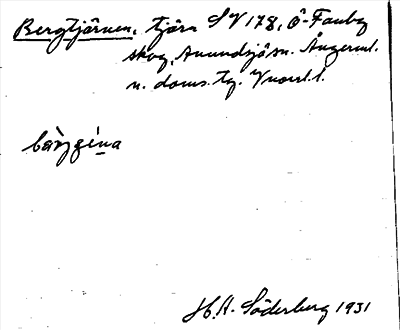 Bergtjärnen, tjärn SV 178, Ö-Fanby
skog, Anundsjö sn. Ångerml.
n. doms. tg. Vnorrl. l.
H.A. Söderberg 1931